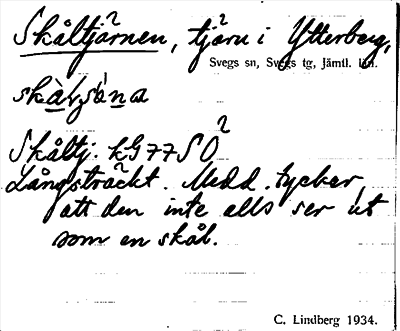 Skåltjärnen, tjärn i Ytterberg,
Svegs sn, Svegs tg, Jämtl. län.
Skåltj. kG77SO
Långsträckt. Medd. tycker,
att den inte alls ser ut
som en skål.
C. Lindberg 1934.